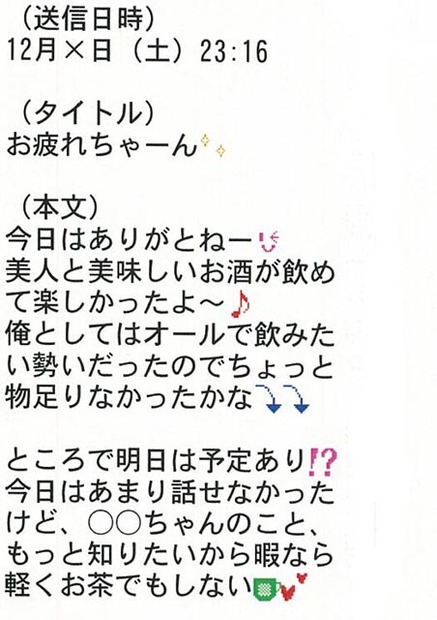 （送信日時）
12月×日（土）23:16
（タイトル）
お疲れちゃーん✨
（本文）
今日はありがとねー
美人と美味しいお酒が飲め
て楽しかったよ～♪
俺としてはオールで飲みた
い勢いだったのでちょっと
物足りなかったかな⤵⤵
ところで明日は予定あり⁉
今日はあまり話せなかった
けど、○○ちゃんのこと、
もっと知りたいから暇なら
軽くお茶でもしない🍵💕